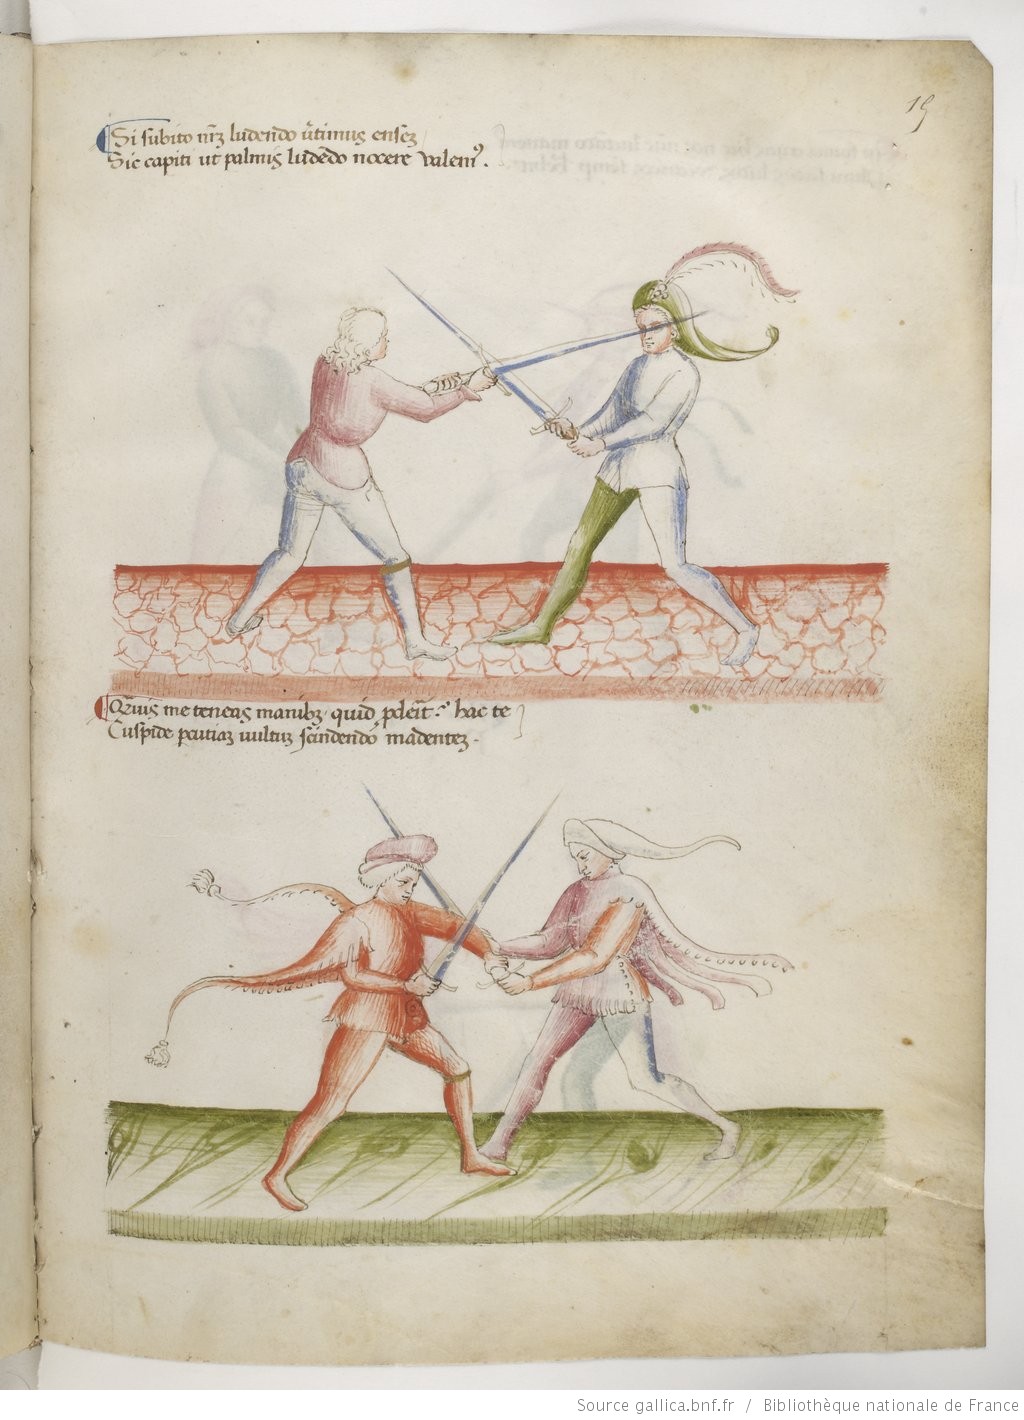 19
Si subito nr̃ȝ ludendo ũtimus ensẽȝ
Sic capiti ut palmis ludẽdo nocere valemꝰ.
Qr̃uis me teneas manibȝ quid ꝓdeĩt. hac te
Cuspide ꝑcutiaȝ uultuȝ scindendo madenteȝ.
Source gallica.bnf.fr / Bibliothèque nationale de France